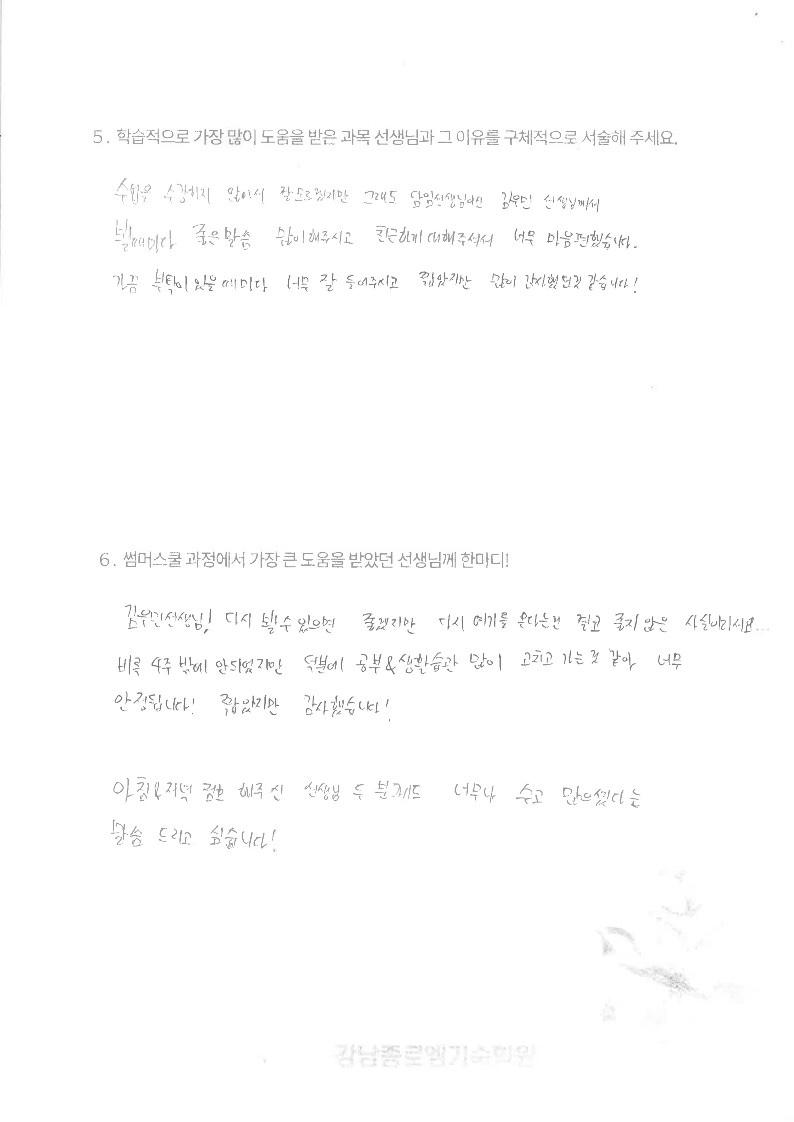 5. 학습적으로 가장 많이 도움을 받은 과목 선생님과 그 이유를 구체적으로 서술해 주세요.
수업은 수강하지 않아서 잘 모르겠지만 그래도 담임선생님이신 김우민 선생님께서
뵐때마다 좋은 말씀 많이 해주시고 친근하게 대해주셔서 너무 마음 편했습니다.
가끔 부탁이 있을 때마다 너무 잘 들어주시고 짧았지만 많이 감사했던것 같습니다!
6. 썸머스쿨 과정에서 가장 큰 도움을 받았던 선생님께 한마디!
김우민선생님! 다시 뵐 수 있으면 좋겠지만 다시 여기를 온다는건 결코 좋지 않은 사실이라서요...
비록 4주 밖에 안되었지만 덕분에 공부&생활습관 많이 고치고 가는 것 같아 너무
안정됩니다! 짧았지만 감사했습니다!
아침&저녁 점호 해주신 선생님 두 분께도 너무나 수고 많으셨다는
말씀 드리고 싶습니다!
강남종로엠기숙학원